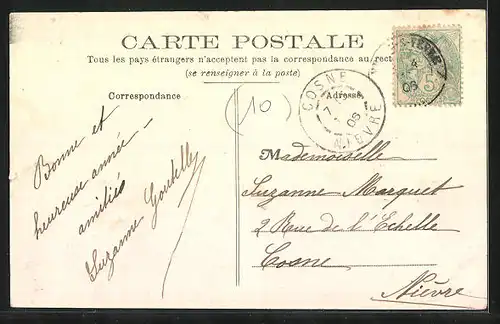 CARTE POSTALE
Tous les pays étrangers n'acceptent pas la correspondance au recto
(se renseigner à la poste)
Correspondance
Adresse
(10)
COSNE
7
06
NIÈVRE
4
06
5
Bonne et
heureuse année
amitiés
Suzanne
Mademoiselle
Suzanne Marquet
2 Rue de l'Echelle
Cosne
Nièvre